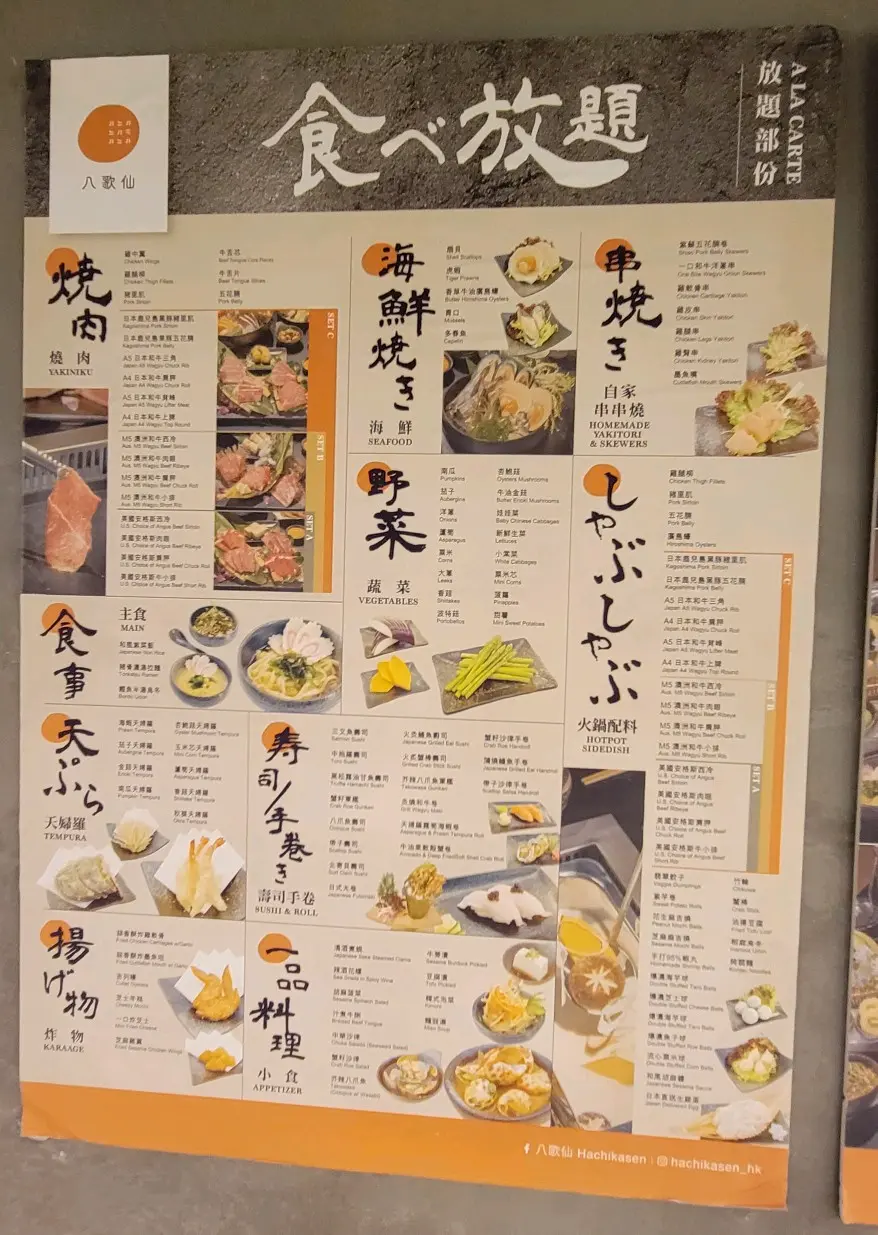 八歌仙
食べ放題
放題部份
A LA CARTE
焼肉
燒肉
YAKINIKU
雞中翼
Chicken Wings
雞腿柳
Chicken Thigh Fillets
豬里肌
Pork Sirloin
牛舌芯
牛舌片
五花腩
Pork Belly
日本鹿兒島黑豚豬里肌
Kagoshima Pork Sirloin
日本鹿兒島黑豚五花腩
Kagoshima Pork Belly
A5 日本和牛三角
Japan A5 Wagyu Chuck Rib
A4 日本和牛肩胛
Japan A4 Wagyu Chuck Roll
A5 日本和牛背峰
Japan A5 Wagyu Lifter Meat
A4 日本和牛上腰
Japan A4 Wagyu Top Round
SET C
M5 澳洲和牛西冷
Aus. M5 Wagyu Beef Sirloin
M5 澳洲和牛肉眼
Aus. M5 Wagyu Beef Ribeye
M5 澳洲和牛肩胛
Aus. M5 Wagyu Beef Chuck Roll
M5 澳洲和牛小排
Aus. M5 Wagyu Short Rib
SET B
美國安格斯西冷
U.S. Choice of Angus Beef Sirloin
美國安格斯肉眼
U.S. Choice of Angus Beef Ribeye
美國安格斯肩胛
U.S. Choice of Angus Beef Chuck Roll
美國安格斯牛小排
U.S. Choice of Angus Beef Short Rib
SET A
海鮮焼き
海鮮
SEAFOOD
扇貝
Shell Scallops
虎蝦
Tiger Prawns
香草牛油廣島蠔
Butter Hiroshima Oysters
青口
Mussels
多春魚
Capelin
串焼き
自家
串串燒
HOMEMADE
YAKITORI
& SKEWERS
紫蘇五花腩卷
Shiso Pork Belly Skewers
一口和牛洋蔥串
One Bite Wagyu Onion Skewers
雞軟骨串
Chicken Cartilage Yakitori
雞皮串
Chicken Skin Yakitori
雞腿串
Chicken Legs Yakitori
雞腎串
Chicken Kidney Yakitori
墨魚嘴
Cuttlefish Mouth Skewers
野菜
蔬菜
VEGETABLES
南瓜
Pumpkins
茄子
Aubergine
洋蔥
Onions
蘆筍
Asparagus
粟米
Corns
大蔥
Leeks
香菇
Shiitakes
波特菇
Portobellos
杏鮑菇
Oysters Mushrooms
牛油金菇
Butter Enoki Mushrooms
娃娃菜
Baby Chinese Cabbages
新鮮生菜
Lettuces
小棠菜
White Cabbages
粟米芯
Mini Corns
菠蘿
Pineapples
甜薯
Mini Sweet Potatoes
しゃぶしゃぶ
火鍋配料
HOTPOT
SIDEDISH
雞腿柳
Chicken Thigh Fillets
豬里肌
Pork Sirloin
五花腩
Pork Belly
廣島蠔
Hiroshima Oysters
日本鹿兒島黑豚豬里肌
Kagoshima Pork Sirloin
日本鹿兒島黑豚五花腩
Kagoshima Pork Belly
A5 日本和牛三角
Japan A5 Wagyu Chuck Rib
A4 日本和牛肩胛
Japan A4 Wagyu Chuck Roll
A5 日本和牛背峰
Japan A5 Wagyu Lifter Meat
A4 日本和牛上腰
Japan A4 Wagyu Top Round
SET C
M5 澳洲和牛西冷
Aus. M5 Wagyu Beef Sirloin
M5 澳洲和牛肉眼
Aus. M5 Wagyu Beef Ribeye
M5 澳洲和牛肩胛
Aus. M5 Wagyu Beef Chuck Roll
M5 澳洲和牛小排
Aus. M5 Wagyu Short Rib
SET B
美國安格斯西冷
U.S. Choice of Angus
Beef Sirloin
美國安格斯肉眼
U.S. Choice of Angus
Beef Ribeye
美國安格斯肩胛
U.S. Choice of Angus Beef Chuck
Roll
美國安格斯牛小排
U.S. Choice of Angus Beef
Short Rib
SET A
翡翠餃子
Veggie Dumplings
紫芋卷
花生麻吉燒
Peanut Mochi Balls
芝麻麻吉燒
Sesame Mochi Balls
手打95%蝦丸
Homemade Shrimp Balls
爆漿芝士球
Double Stuffed Cheese Balls
爆漿魚子球
流心粟米球
Double Stuffed Corn Balls
日本直送生雞蛋
Japan Delivered Egg
竹輪
Chikuwa
蟹棒
Crab Stick
油揚豆腐
Fried Tofu
烏冬
食事
主食
MAIN
Japanese Nori Rice
豬骨濃湯拉麵
Tonkatsu Ramen
天ぷら
天婦羅
TEMPURA
海蝦天婦羅
Prawn Tempura
茄子天婦羅
Aubergine Tempura
金菇天婦羅
Enoki Tempura
南瓜天婦羅
Pumpkin Tempura
杏鮑菇天婦羅
Oyster Mushroom Tempura
玉米芯天婦羅
Mini Corn Tempura
蘆筍天婦羅
Asparagus Tempura
香菇天婦羅
Shiitake Tempura
秋葵天婦羅
Okra Tempura
寿司/手巻き
壽司手卷
SUSHI & ROLL
三文魚壽司
Salmon Sushi
中拖羅壽司
Toro Sushi
黑松露油甘魚壽司
Truffle Hamachi Sushi
蟹籽軍艦
Crab Roe Gunkan
八爪魚壽司
Octopus Sushi
帶子壽司
Scallop Sushi
北寄貝壽司
Surf Clam Sushi
日式太卷
Japanese Futomaki
火炙鰻魚壽司
Japanese Grilled Eel Sushi
火炙蟹棒壽司
Grilled Crab Stick Sushi
芥辣八爪魚軍艦
Takowasa Gunkan
炙燒和牛卷
Grill Wagyu Maki
天婦羅蘆筍海蝦卷
Asparagus & Prawn Tempura Roll
牛油果軟殼蟹卷
蟹籽沙律手卷
Crab Roe Handroll
蒲燒鰻魚手卷
Japanese Grilled Eel Handroll
帶子沙律手卷
揚げ物
炸物
KARAAGE
蒜香酥炸雞軟骨
吉列蠔
芝士年糕
Cheesy Mochi
一口炸芝士
芝麻雞翼
Fried Sesame Chicken Wings
一品料理
小食
APPETIZER
清酒煮蜆
辣酒花螺
Sea Snails in Spicy Wine
胡麻菠菜
Sesame Spinach Salad
汁煮牛脷
中華沙律
Chuka Salad (Seaweed Salad)
蟹籽沙律
Crab Roe Salad
芥辣八爪魚
Takowasa
牛蒡漬
豆腐漬
Tofu Pickled
韓式泡菜
Kimchi
麵豉湯
Miso Soup
八歌仙 Hachikasen
hachikasen_hk